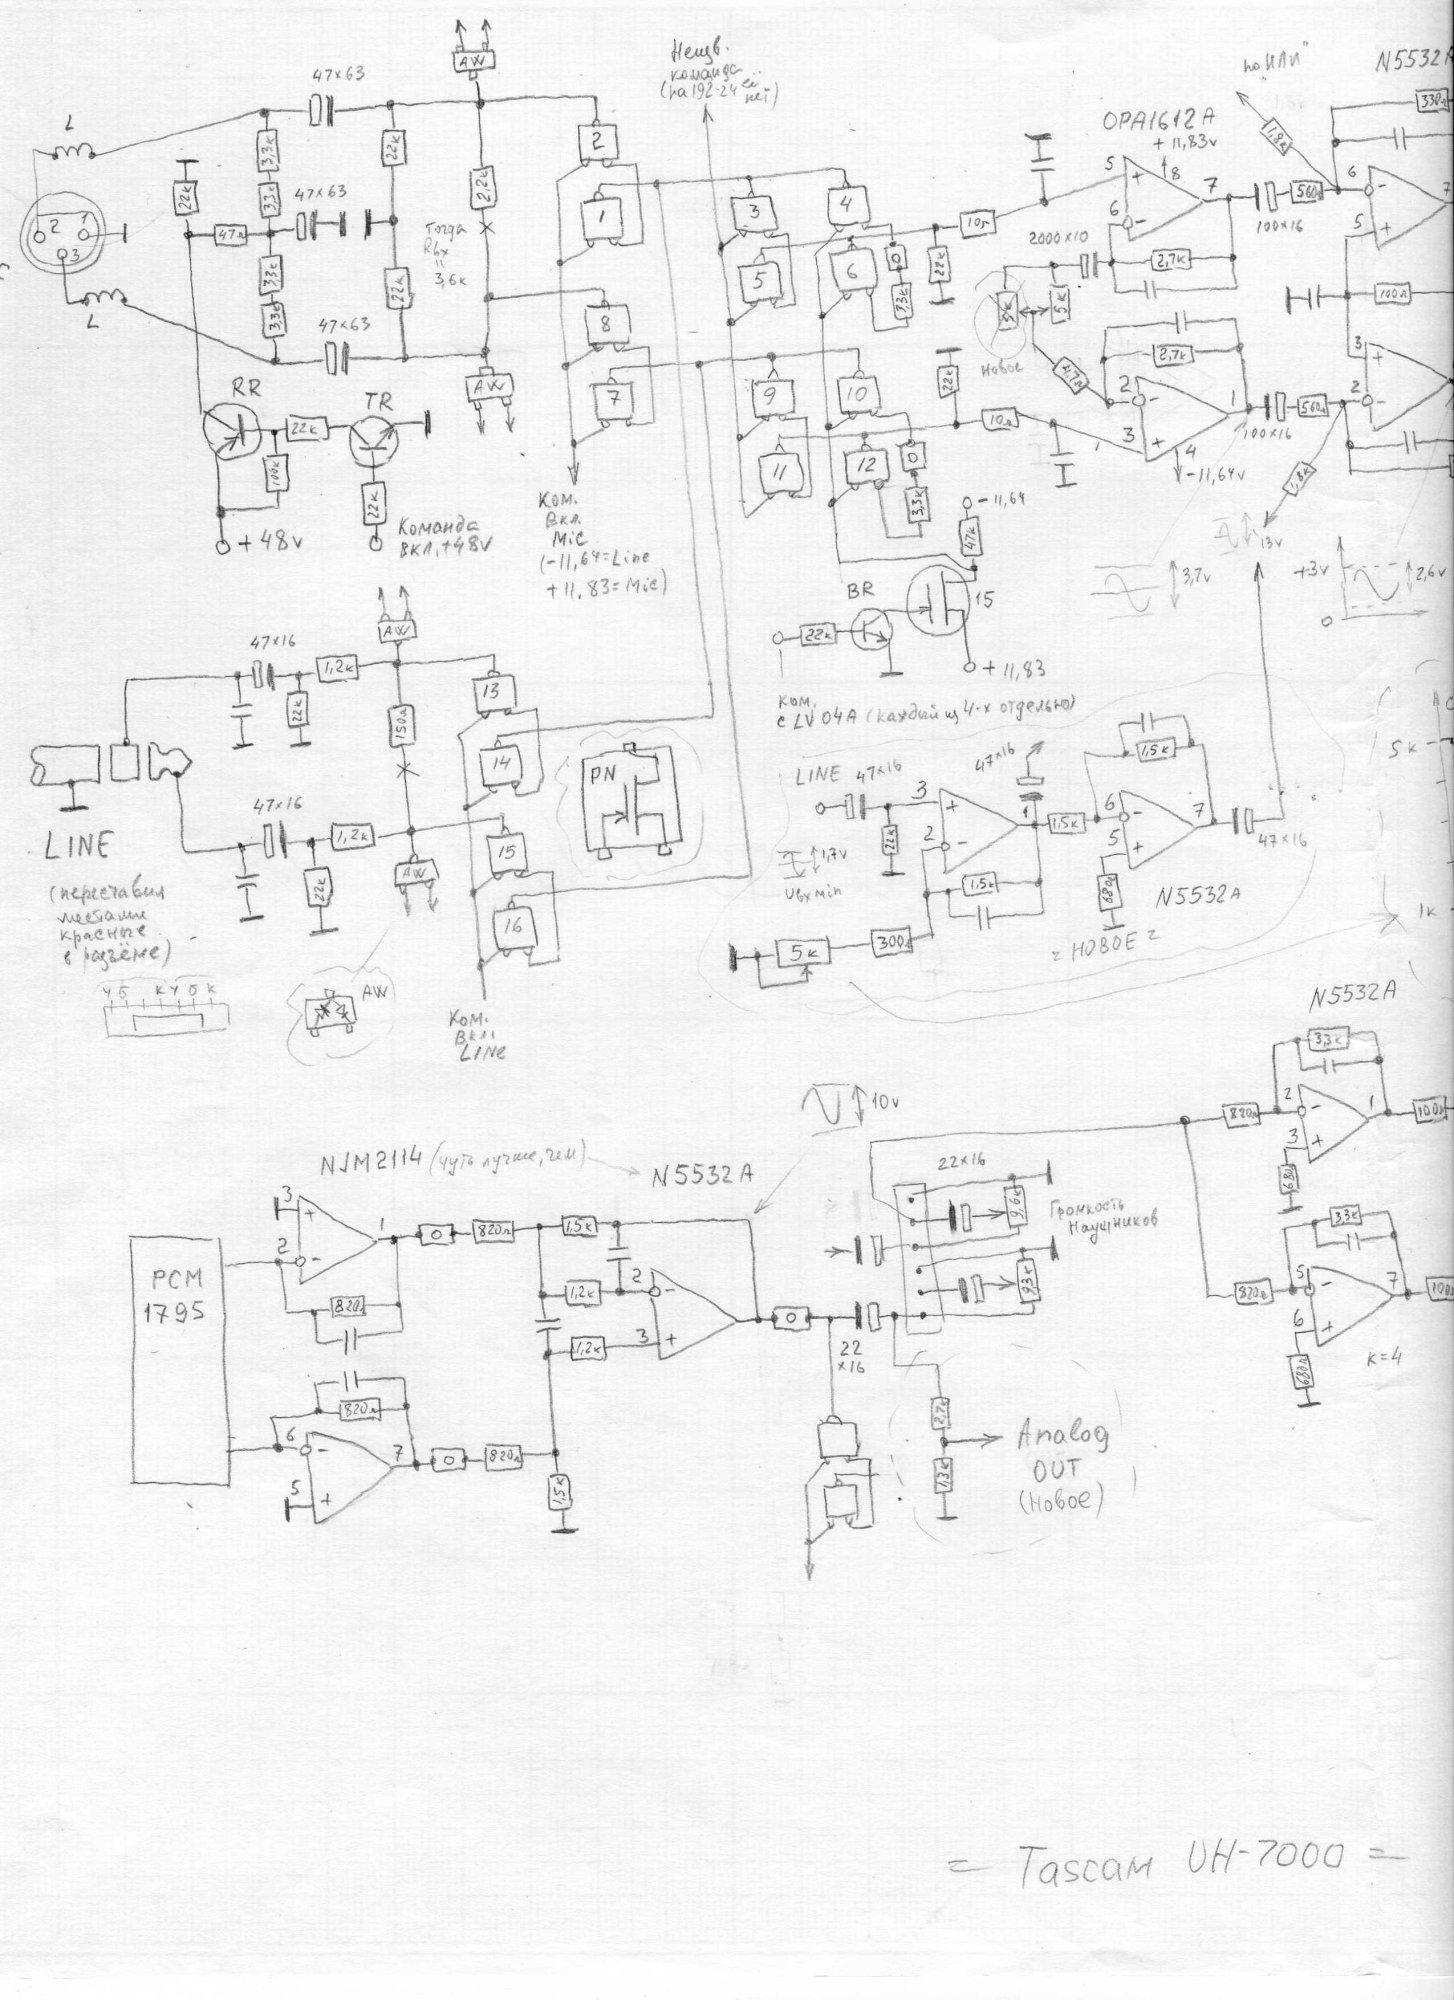 L
47×63
AW
2,2к
22к
3,3к
33к
47×63
47л
2
1
3
L
22к
33к
3,3к
47×63
22к
Тогда
Rвх
=
3,6к
AW
RR
22к
TR
100к
22к
+48v
Команда
ВКЛ,+48V
2
1
8
7
Ком.
Вкл.
Mic
(-11,64=Line
+11,83=Mic)
Неизв.
команда
(на 192-24 её
нет)
3
4
5
6
0
3,3к
9
10
11
12
0
3,3к
22к
10л
22к
10л
-11,64
47к
BR
15
22к
+11,83
Ком.
с LV04A (каждый из 4-х отдельно)
OPA1612A
+11,83v
5
8
7
6
2000×10
2,7к
5к
5к
Новое
4,7л
2,7к
2
1
3
4
-11,64v
100×16
560л
100×16
560л
1,8к
1,8к
13v
по "ИЛИ"
N5532A
330л
6
7
5
100л
3
2
3,7v
+3v
2,6v
0
5к
1к
47×16
1,2к
22к
AW
150л
13
14
15
16
PN
LINE
(переставил
местами
красные
в разъёме)
У Б К У Б К
47×16
1,2к
22к
AW
AW
Ком.
Вкл.
LINE
LINE
47×16
22к
3
2
1
47×16
1,5к
1,5к
6
5
7
1,5к
680л
47×16
N5532A
1,7v
Uвх min
5к
300л
= НОВОЕ =
10v
NJM2114 (чуть лучше, чем)
N5532A
PCM
1795
3
2
1
820л
0
820л
1,5к
1,2к
2
3
1,2к
820л
6
5
7
0
820л
1,5к
0
22
×16
22×16
Громкость
Наушников
2,7к
1,3к
Analog
OUT
(Новое)
N5532A
820л
3,3к
2
1
3
680
100л
820л
3,3к
5
7
6
680л
100л
к=4
= Tascam UH-7000 =